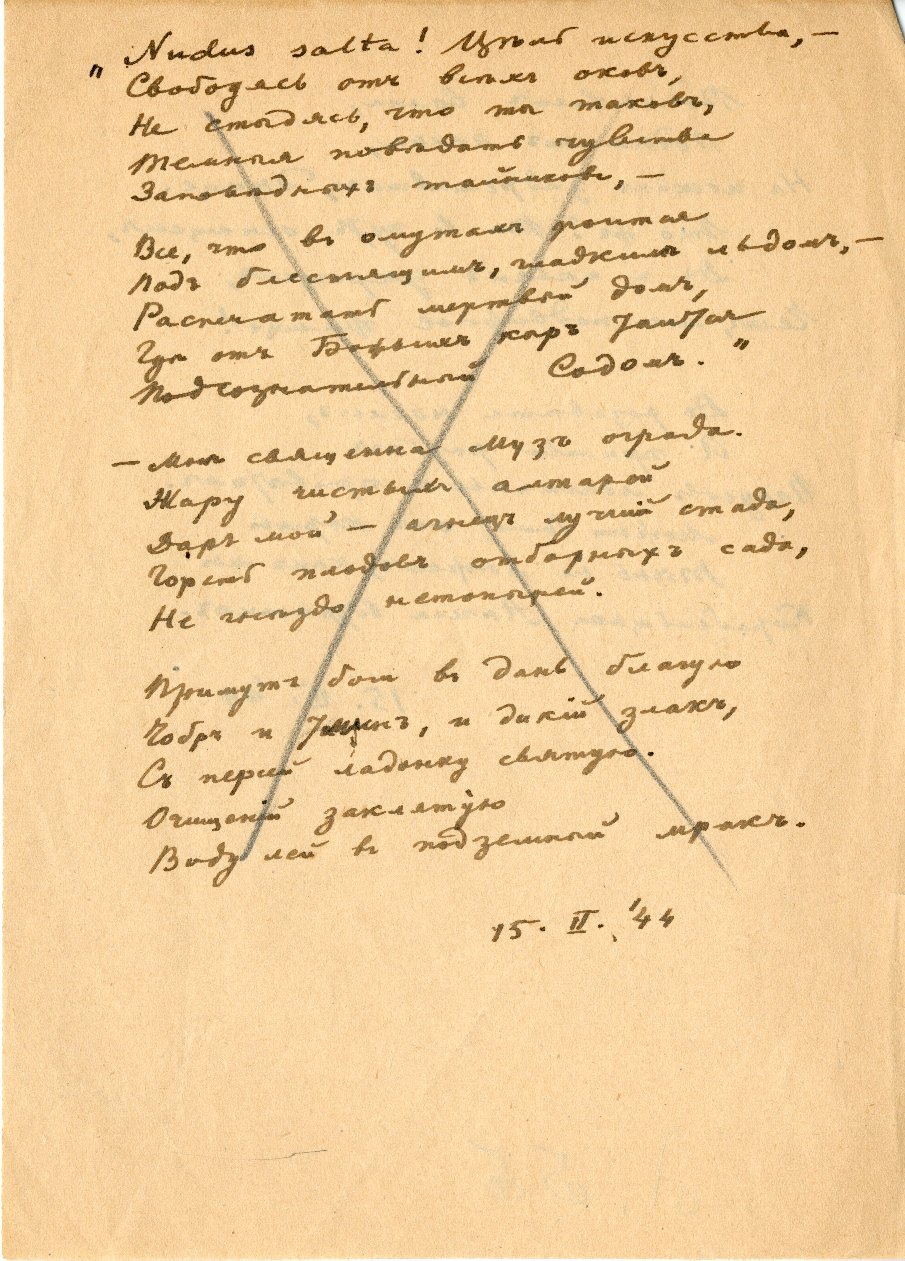 "Nudus salta! Цѣль искусства, —
Свободясь отъ всѣхъ оковъ,
Не стыдясь, что ты таковъ,
Темныя повѣдать чувства
Заповѣдныхъ тайниковъ, —
Все, что въ омутахъ поитая
Подъ блестящимъ, гладкимъ льдомъ, —
Распечатать мертвый домъ,
Гдѣ отъ Божьихъ каръ
Подсознательный Содомъ."
— Мнѣ священна Музъ ограда.
Жару чистыхъ алтарей
Даръ мой — агнецъ лучшій стада,
Горсть плодовъ отборныхъ сада,
Не гнѣздо нетопырей.
Примутъ боги въ дань благую
Чобръ и тминъ, и дикій злакъ,
Съ персей ладонку святую.
Очищеній заклятую
Воду лей въ подземный мракъ.
15. II. '44